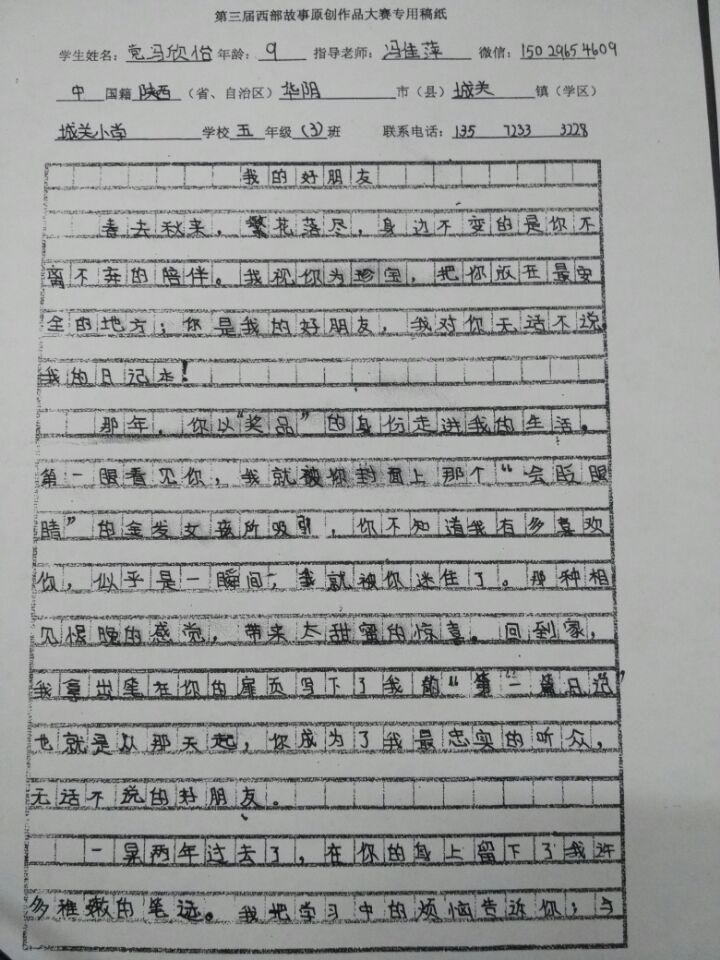 第三届西部故事原创作品大赛专用稿纸
学生姓名：党冯欣怡 年龄：9 指导老师：冯佳萍 微信：15029654609
中国籍 陕西（省、自治区）华阴 市（县）城关 镇（学区）
城关小学 学校 五 年级（3）班 联系电话：135 7233 3228
我的好朋友
春去秋来，繁花落尽，身边不变的是你不
离不弃的陪伴。我视你为珍宝，把你放在最安
全的地方；你是我的好朋友，我对你无话不说。
我的日记本！
那年，你以“奖品”的身份走进我的生活。
第一眼看见你，我就被你封面上那个“会眨眼
睛”的金发女孩所吸引，你不知道我有多喜欢
你，似乎是一瞬间，我就被你迷住了。那种相
见恨晚的感觉，带来太甜蜜的惊喜。回到家，
我拿出笔在你的扉页写下了我的“第一篇日记”
也就是从那天起，你成为了我最忠实的听众，
无话不说的好朋友。
一晃两年过去了，在你的身上留下了我许
多稚嫩的笔迹。我把学习中的烦恼告诉你；与